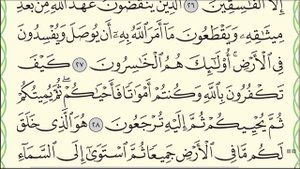 إِلَّا ٱلْفَٰسِقِينَ ٢٦ ٱلَّذِينَ يَنقُضُونَ عَهْدَ ٱللَّهِ مِنۢ بَعْدِ
مِيثَٰقِهِۦ وَيَقْطَعُونَ مَآ أَمَرَ ٱللَّهُ بِهِۦٓ أَن يُوصَلَ وَيُفْسِدُونَ
فِى ٱلْأَرْضِ أُو۟لَٰٓئِكَ هُمُ ٱلْخَٰسِرُونَ ٢٧ كَيْفَ
تَكْفُرُونَ بِٱللَّهِ وَكُنتُمْ أَمْوَٰتًا فَأَحْيَٰكُمْ ثُمَّ يُمِيتُكُمْ
ثُمَّ يُحْيِيكُمْ ثُمَّ إِلَيْهِ تُرْجَعُونَ ٢٨ هُوَ ٱلَّذِى خَلَقَ
لَكُم مَّا فِى ٱلْأَرْضِ جَمِيعًا ثُمَّ ٱسْتَوَىٰٓ إِلَى ٱلسَّمَآءِ